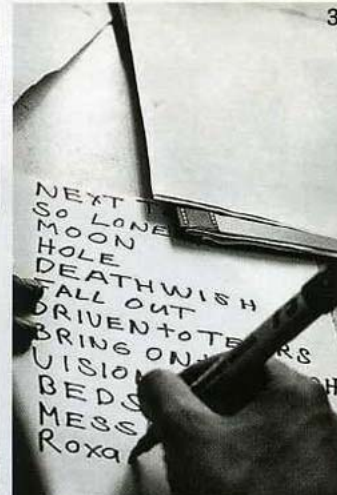 3
NEXT T
SO LONE
MOON
HOLE
DEATHWISH
FALL OUT
DRIVEN to TE RS
BRING ON H
VISION
BEDS
MESS
Roxa